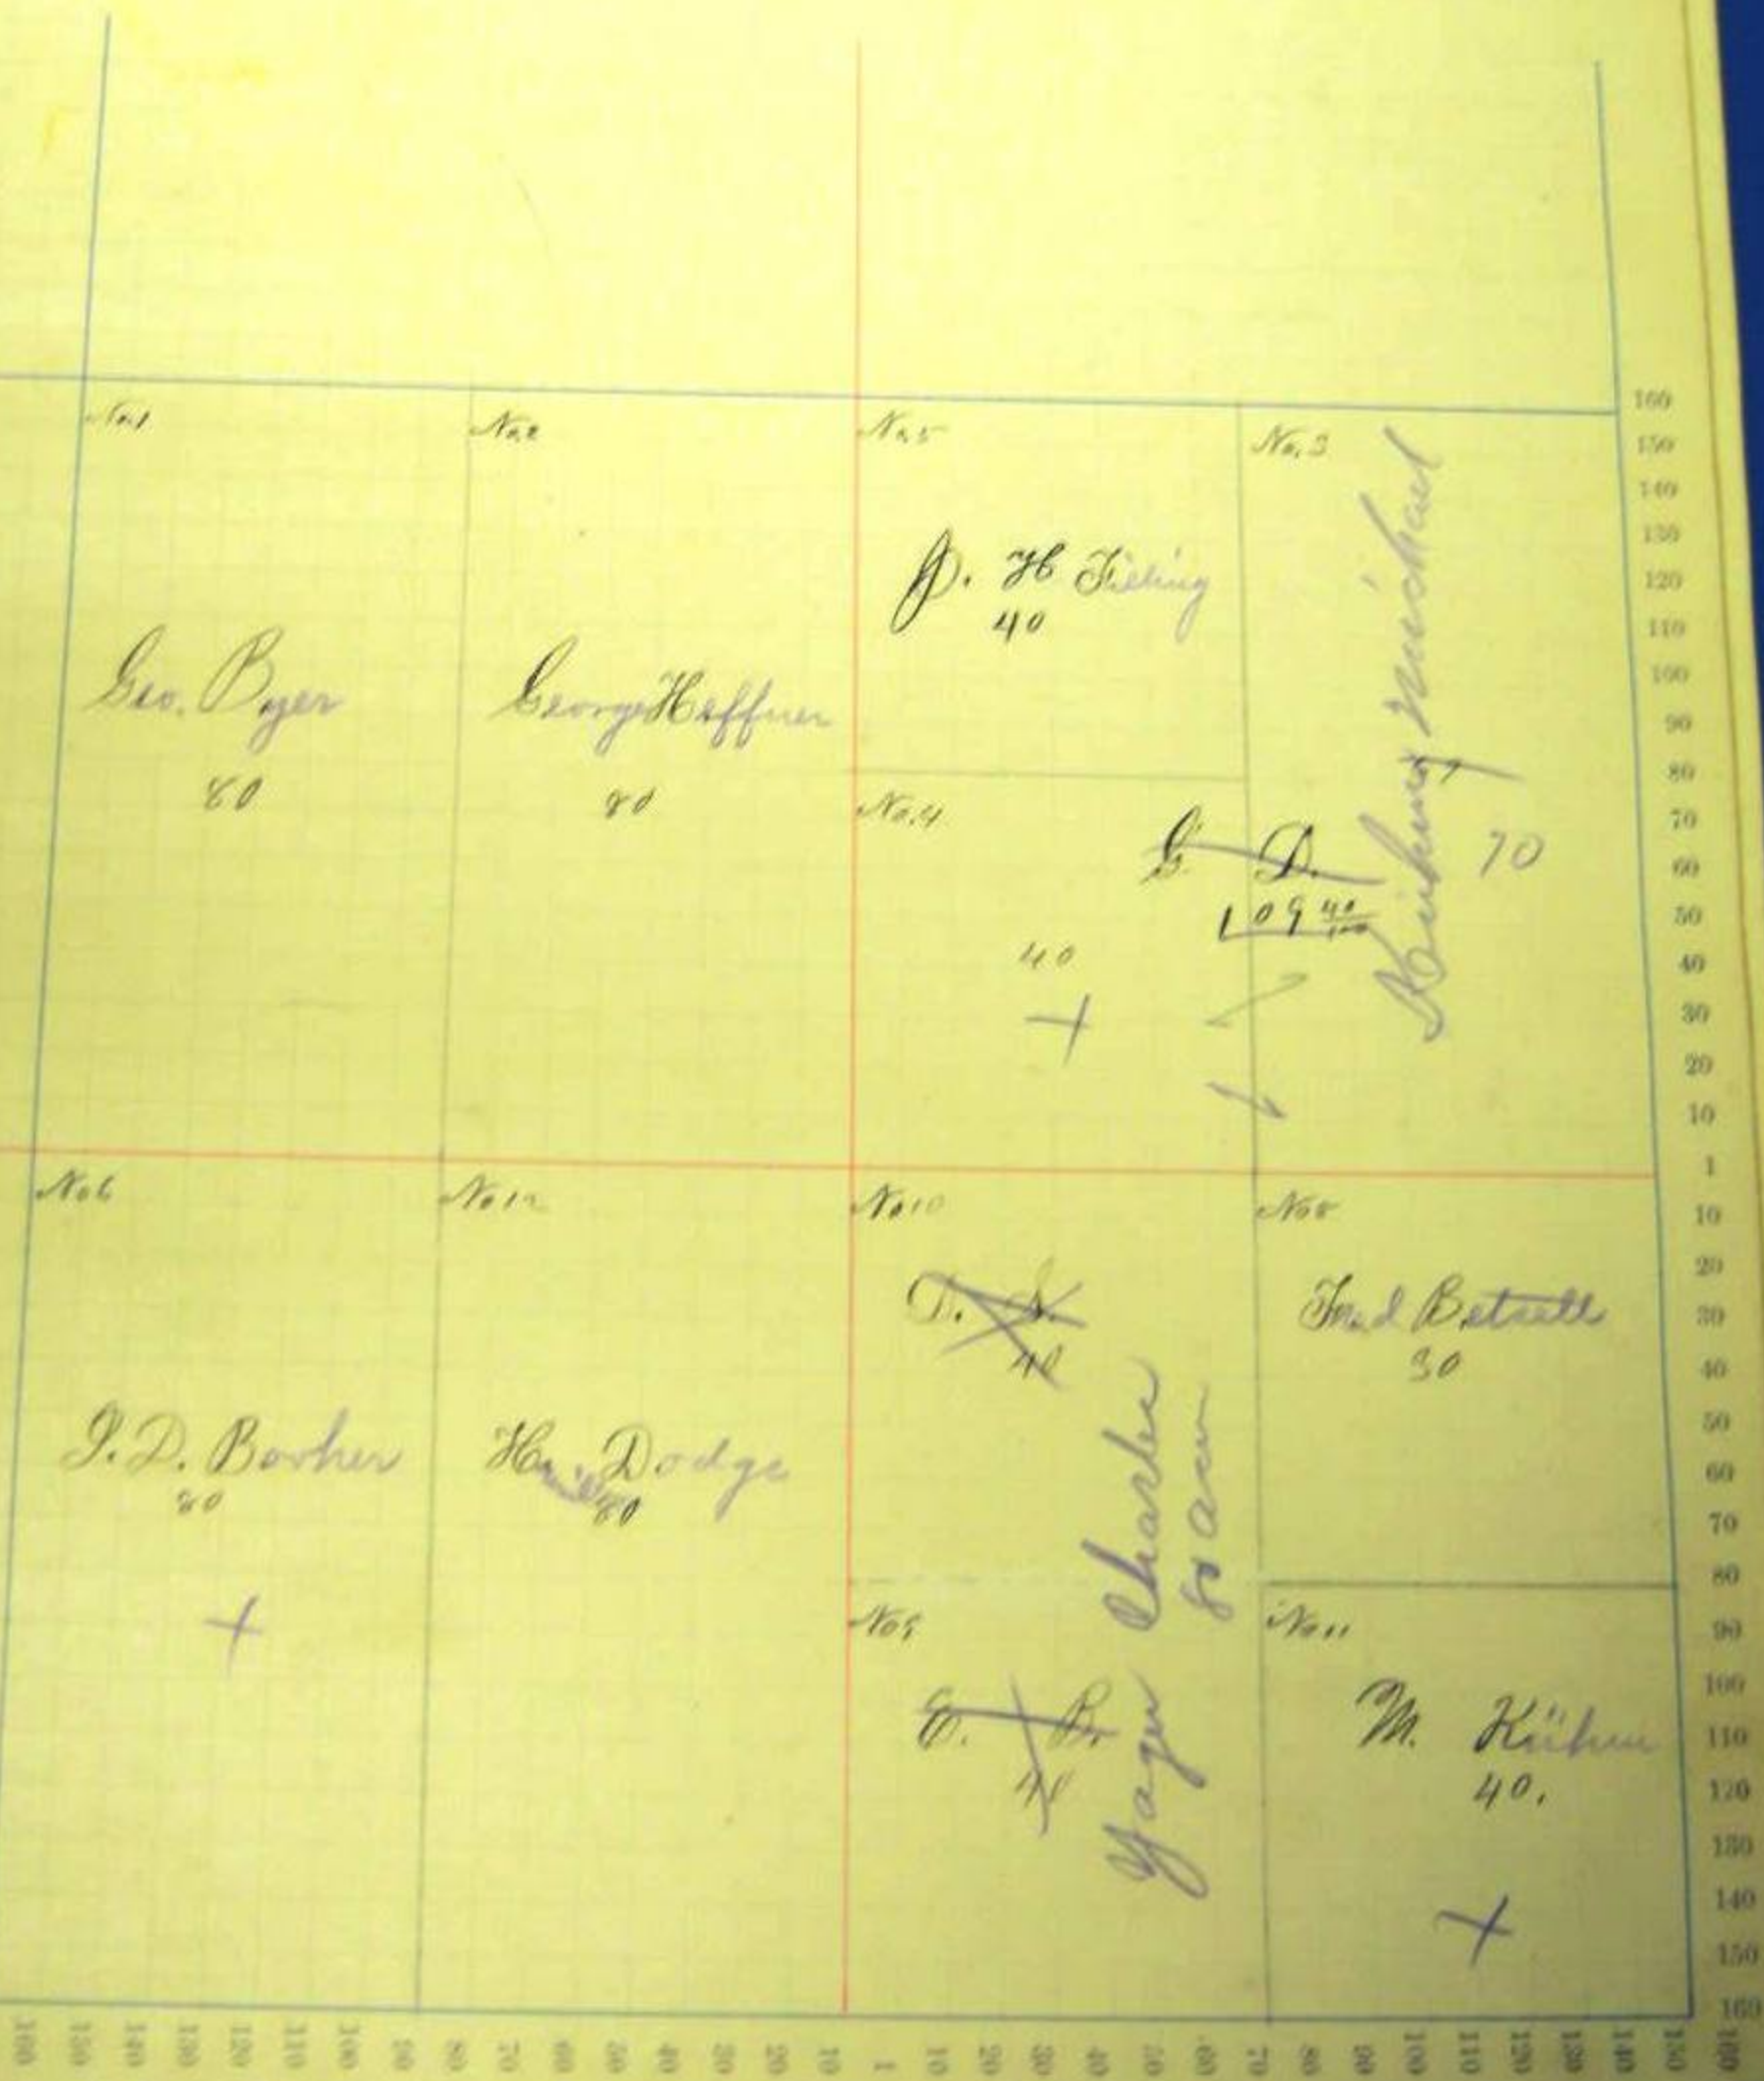 No.1
Geo. Byer
80
No.2
George Heffner
80
No.5
J. H
40
No.3
70
No.4
G. D.
109 40/100
40
No 6
J. D. Barker
80
No 12
Dodge
80
No 10
D. S.
40
No 8
Fred
30
No 9
E. B.
40
Yager Charles
80
No 11
M. Kühn
40.
160
150
140
130
120
110
100
90
80
70
60
50
40
30
20
10
1
10
20
30
40
50
60
70
80
90
100
110
120
130
140
150
160
160 150 140 130 120 110 100 90 80 70 60 50 40 30 20 10 1 10 20 30 40 50 60 70 80 90 100 110 120 130 140 150 160